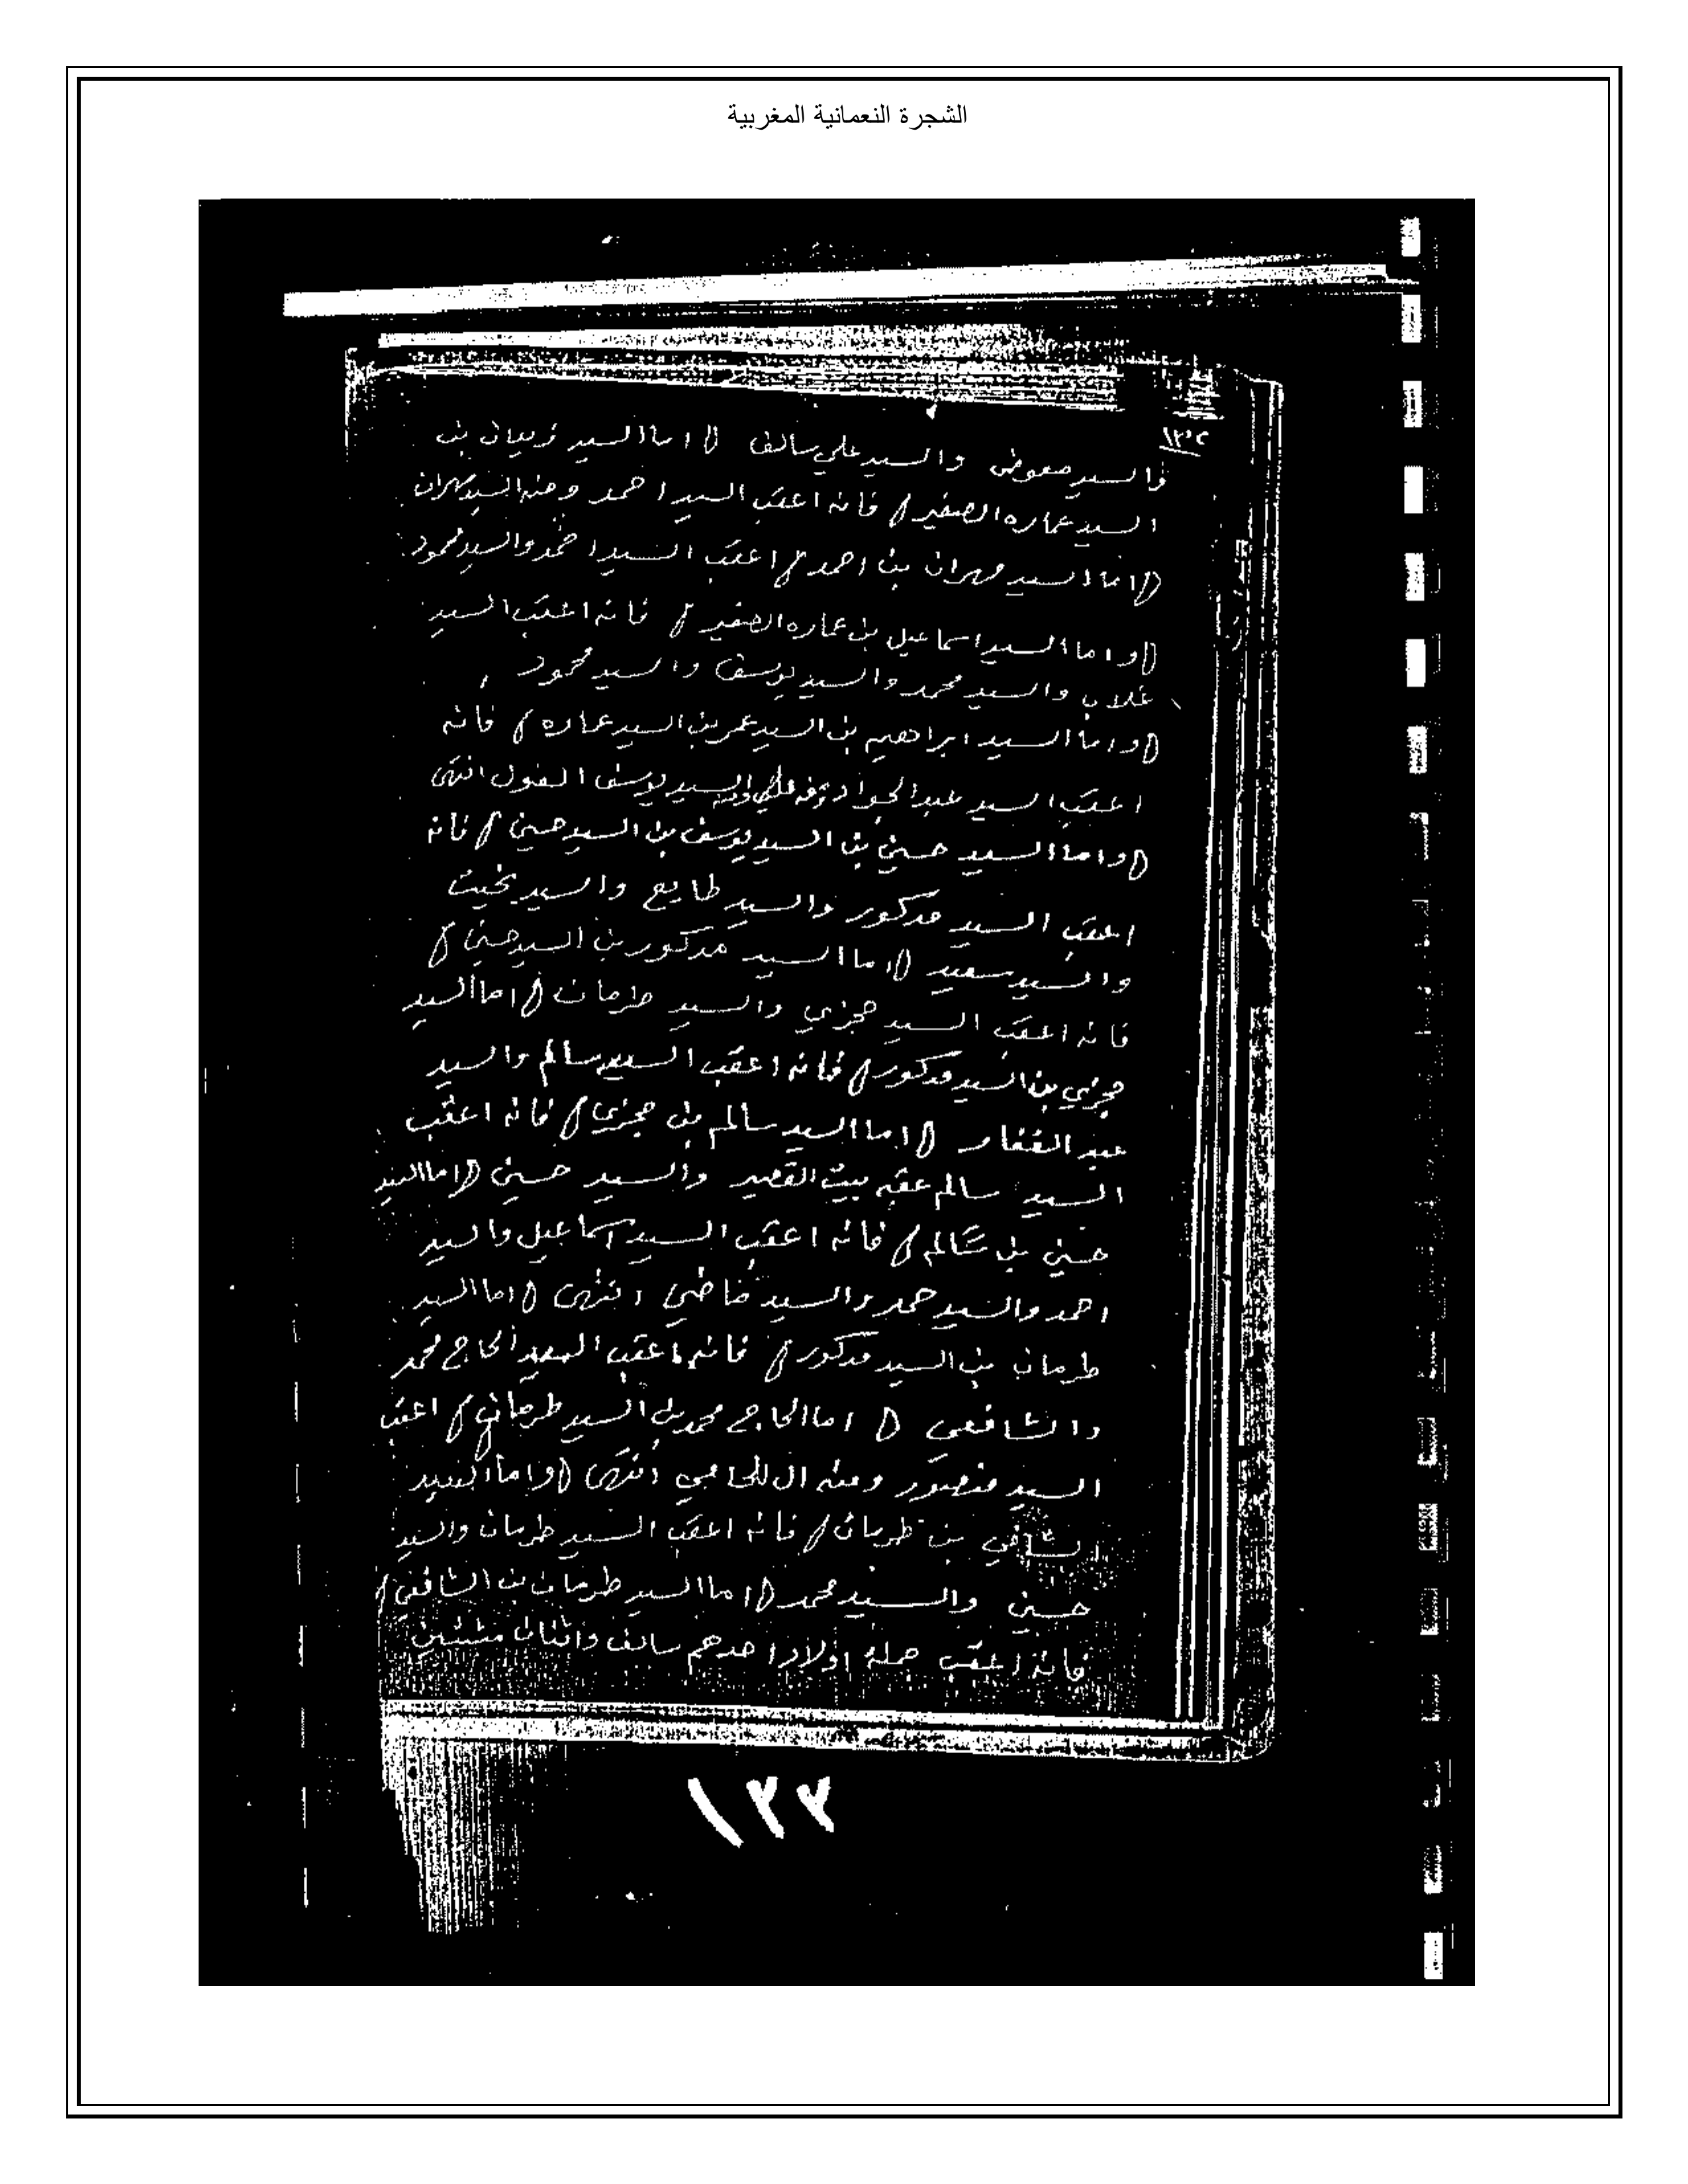 الشجرة النعمانية المغربية
١٣٢
والسيد معوض والسيد علي سالف اما السيد بن
السيد عماره الصغير فانه اعقب السيد احمد ومنه السيد مهران
اما السيد مهران بن احمد اعقب السيد احمد والسيد محمود
واما السيد اسماعيل بن عماره الصغير فانه اعقب السيد
غلاب والسيد محمد والسيد يوسف والسيد محمود
واما السيد ابراهيم بن السيد عمر بن السيد عماره فانه
اعقب السيد عبد الجواد السيد يوسف الغول انتهى
واما السيد حسين بن السيد يوسف بن السيد حسين فانه
اعقب السيد مدكور والسيد طايع والسيد بخيت
والسيد سعيد اما السيد مدكور بن السيد حسين
فانه اعقب السيد حجزي والسيد طرمان اما السيد
حجزي بن السيد مدكور فانه اعقب السيد سالم والسيد
عبد الغفار اما السيد سالم بن حجزي فانه اعقب
السيد سالم عقبه ببيت القصير والسيد حسين اما السيد
حسين بن سالم فانه اعقب السيد اسماعيل والسيد
احمد والسيد حمد والسيد انتهى اما السيد
طرمان بن السيد مدكور فانه اعقب السيد الحاج محمد
والشافعي اما الحاج محمد بن السيد طرمان اعقب
السيد منصور ومنه ال انتهى واما السيد
الشافعي بن طرمان فانه اعقب السيد طرمان والسيد
حسين والسيد محمد اما السيد طرمان بن الشافعي
فانه اعقب جملة اولاد احدهم سالف واثنان
١٣٣